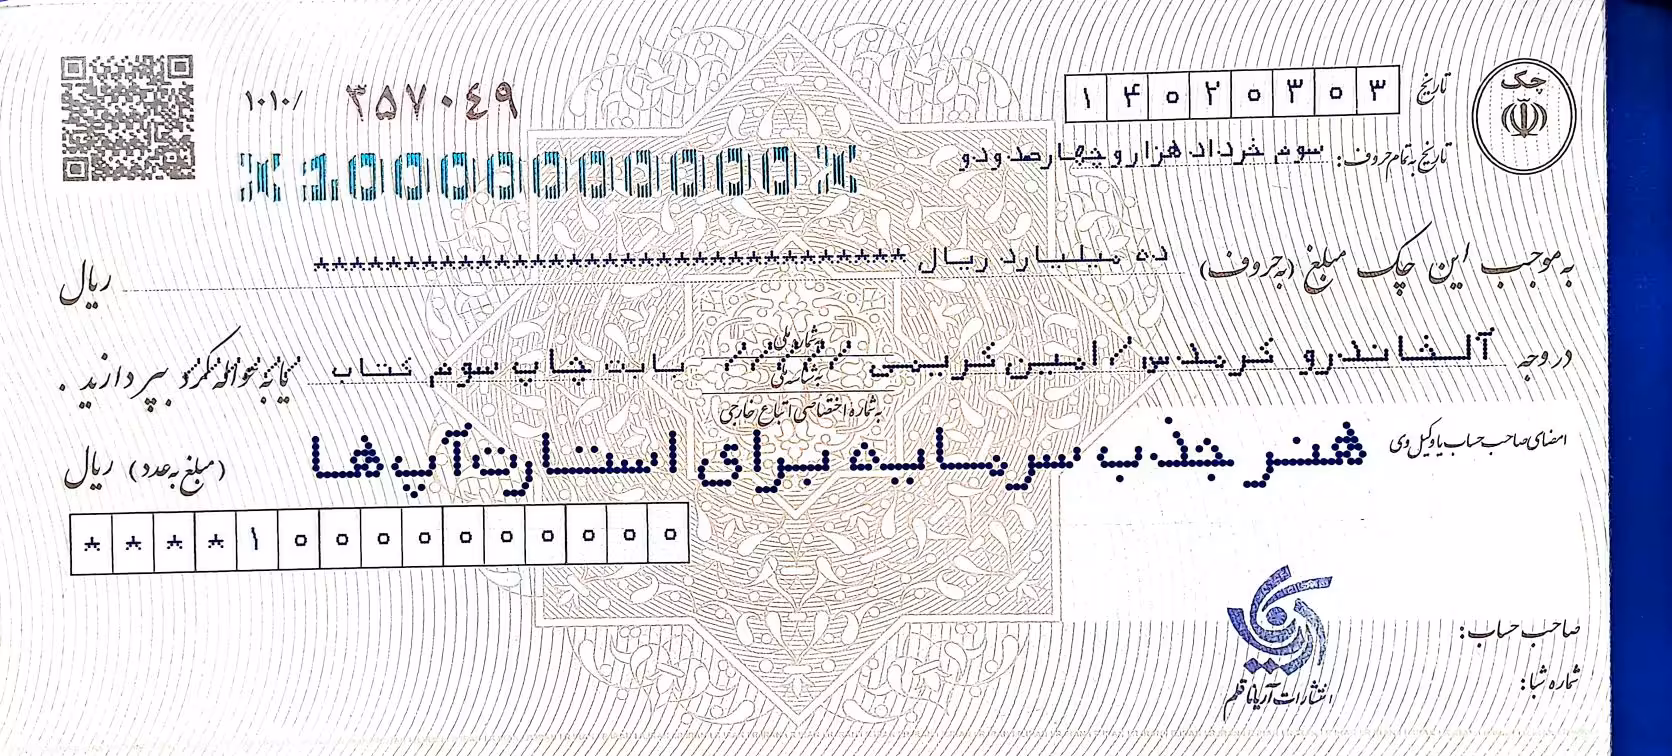 چک
تاریخ ۱۴۰۲۰۳۰۳
۱۰۱۰/ ۳۵۷۰۴۹
تاریخ به تمام حروف: سوم خرداد هزاروچهارصدودو
٪10000000000٪
به موجب این چک مبلغ (به حروف) ده میلیارد ریال ****************************** ریال
در وجه آلشاندرو کریدس/امین کریمی ///// بابت چاپ سوم کتاب یا به حواله کرد بپردازید.
به شماره ملی
به شناسه ملی
به شماره اختصاصی اتباع خارجی
امضای صاحب حساب یا وکیل وی
هنر جذب سرمایه برای استارت‌آپ‌ها
(مبلغ به عدد) ریال
****۱۰۰۰۰۰۰۰۰۰۰
صاحب حساب:
شماره شبا:
انتشارات آریانا قلم